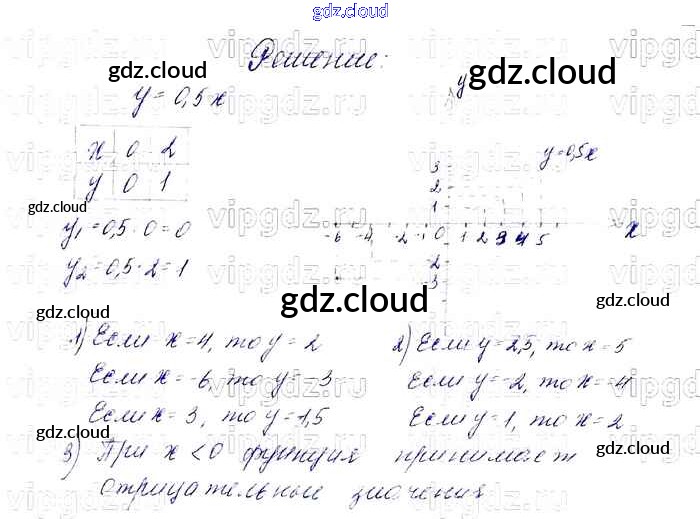 gdz.cloud
Решение:
gdz.cloud
gdz.cloud
y = 0,5x
y
x 0 2
y 0 1
y=0,5x
3
2
1
gdz.cloud
-6 -4 -2 -1 0 1 2 3 4 5 x
-2
-3
y₁=0,5·0=0
y₂=0,5·2=1
gdz.cloud
gdz.cloud
gdz.cloud
1) Если x=4, то y=2
Если x=-6, то y=-3
Если x=3, то y=1,5
2) Если y=2,5, то x=5
Если y=-2, то x=-4
Если y=1, то x=2
gdz.cloud
gdz.cloud
3) При x<0 функция принимает
отрицательные значения
vipgdz.ru